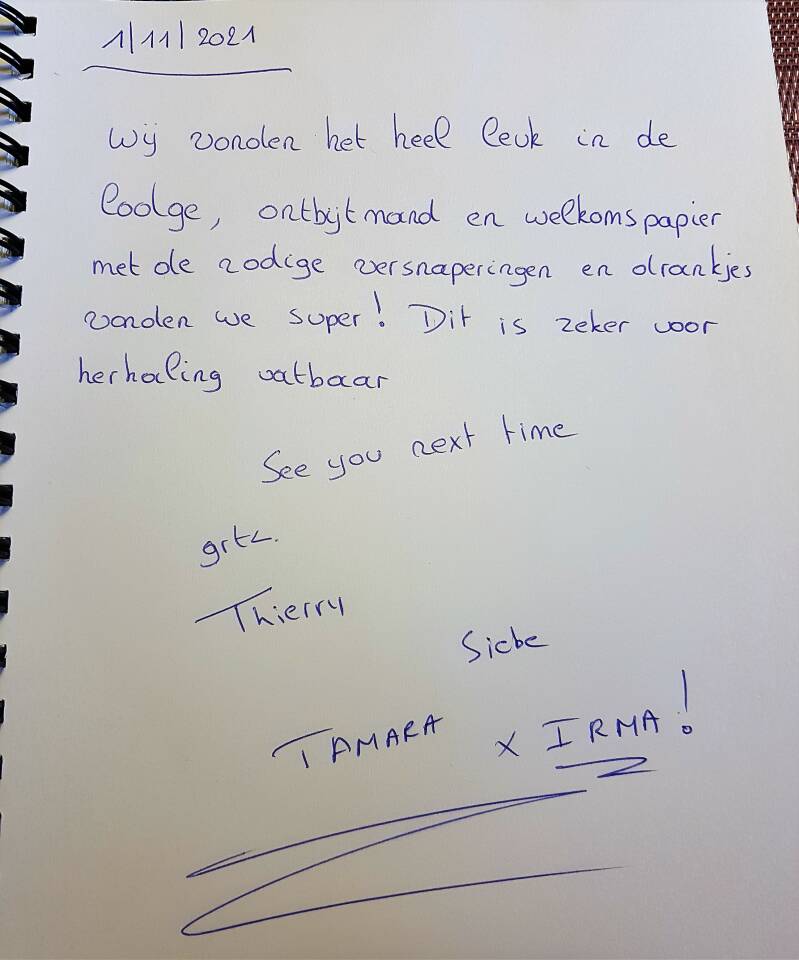 1/11/2021
Wij vonden het heel leuk in de
loolge, ontbijtmand en welkomspapier
met de nodige versnaperingen en drankjes
vonden we super! Dit is zeker voor
herhaling vatbaar
See you next time
grtz.
Thierry
Siebe
TAMARA x IRMA!